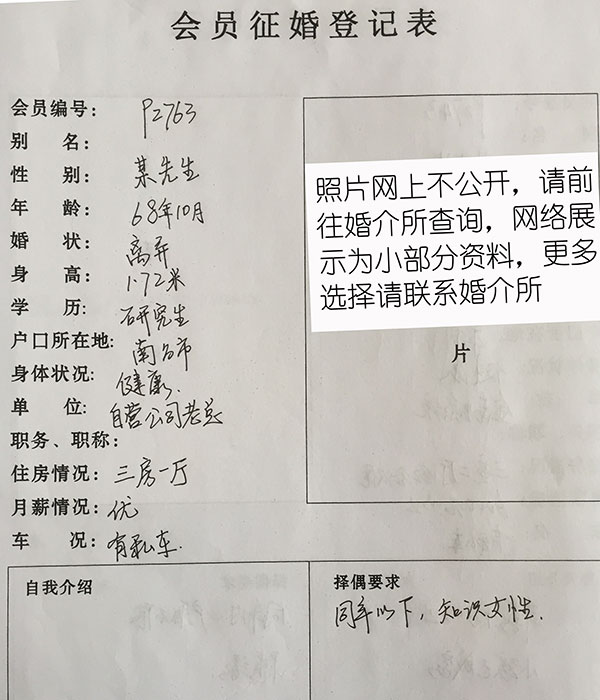 会员征婚登记表
会员编号: P2763
别 名:
性 别: 某先生
年 龄: 68年10月
婚 状: 离异
身 高: 1.72米
学 历: 研究生
户口所在地: 南宁市
身体状况: 健康
单 位: 自营公司老总
职务、职称:
住房情况: 三房一厅
月薪情况: 优
车 况: 有私车
照片网上不公开，请前
往婚介所查询，网络展
示为小部分资料，更多
选择请联系婚介所
片
自我介绍
择偶要求
同年以下，知识女性.